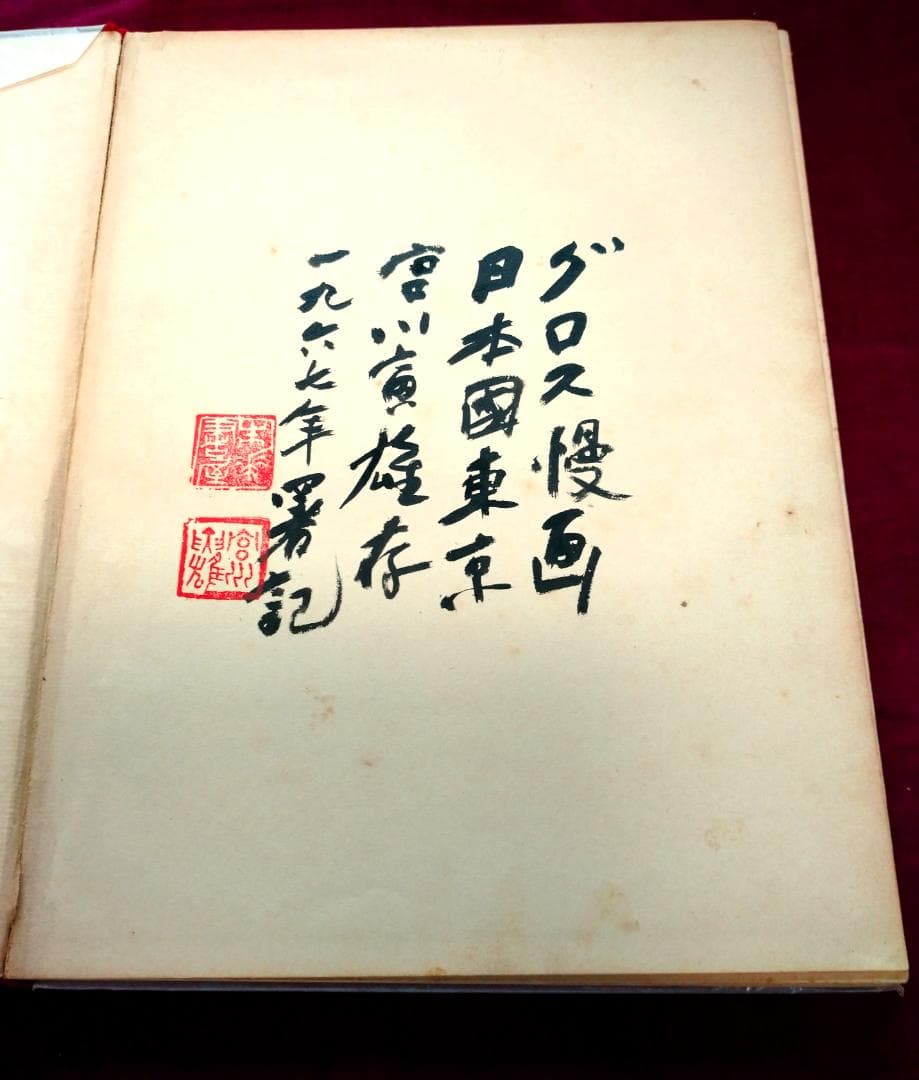 グロス慢画
日本國東京
宮川寅雄存
一九六七年署記
宮川
寅雄